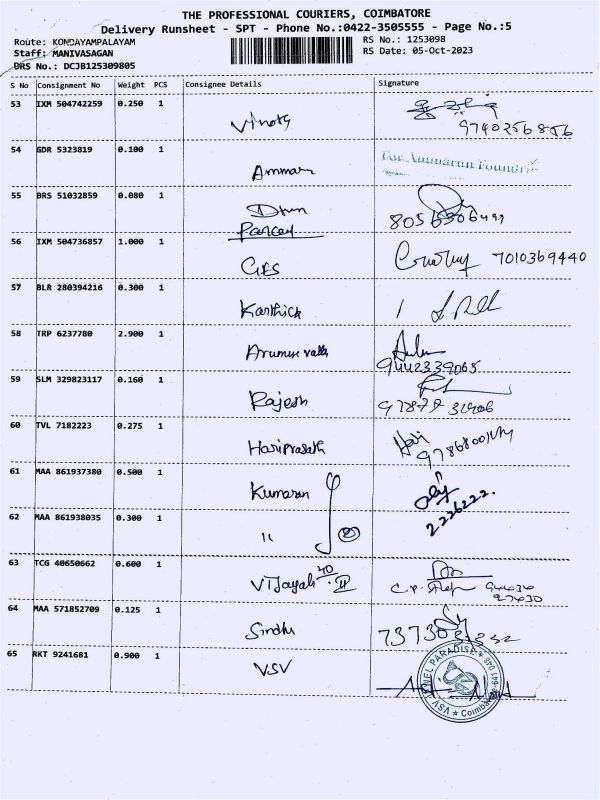 THE PROFESSIONAL COURIERS, COIMBATORE
Delivery Runsheet - SPT - Phone No.:0422-3505555 - Page No.:5
Route: KONDAYAMPALAYAM RS No.: 1253098
Staff: MANIVASAGAN RS Date: 05-Oct-2023
DRS No.: DCJB125309805
S No Consignment No Weight PCS Consignee Details Signature
53 IXM 504742259 0.250 1 Vinoth
54 GDR 5323819 0.100 1 Ammar
55 BRS 51032859 0.080 1
Parcel
56 IXM 504736857 1.000 1 7010369440
57 BLR 280394216 0.300 1 Karthick
58 TRP 6237780 2.900 1
9442339065
59 SLM 329823117 0.160 1 Rajesh
60 TVL 7182223 0.275 1 Hariprasath Hari
61 MAA 861937380 0.500 1 Kumaran
2226222.
62 MAA 861938035 0.300 1 "
63 TCG 40650662 0.600 1
64 MAA 571852709 0.125 1 Sindhu
65 RKT 9241681 0.900 1 VSV